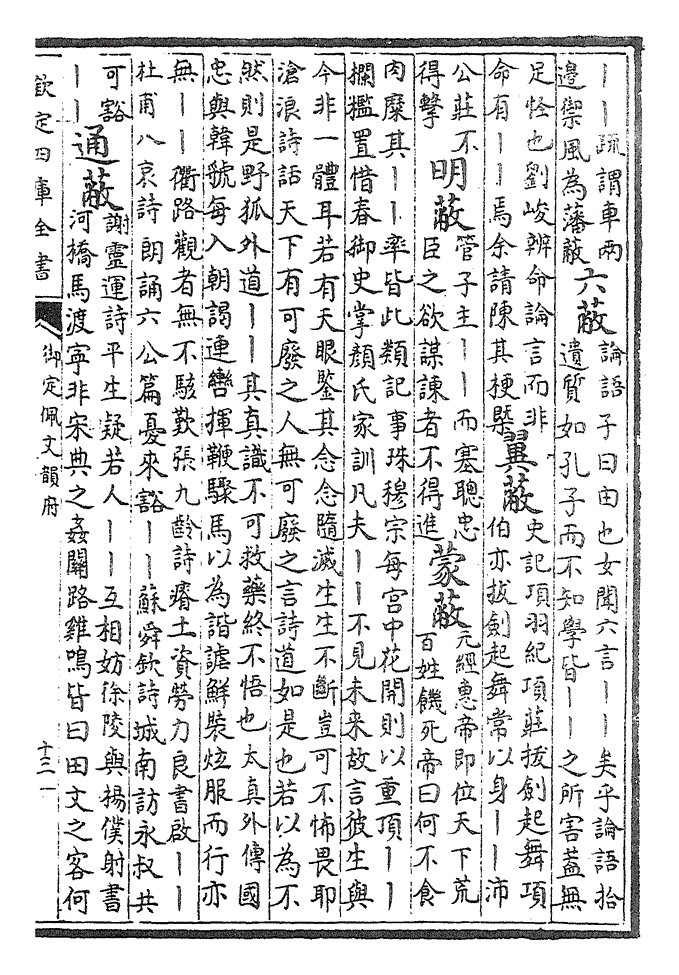 ｜｜疏謂車兩
邊禦風為藩蔽
六蔽
論語子曰由也女聞六言｜｜矣乎論語拾
遺質如孔子而不知學皆｜｜之所害葢無
足怪也劉峻辨命論言而非
命有｜｜焉余請陳其梗槩
翼蔽
史記項羽紀項莊拔劍起舞項
伯亦拔劍起舞常以身｜｜沛
公莊不
得擊
明蔽
管子主｜｜而塞聰忠
臣之欲謀諫者不得進
蒙蔽
元經惠帝即位天下荒
百姓饑死帝曰何不食
肉糜其｜｜率皆此類記事珠穆宗每宫中花開則以重頂｜｜
欄檻置惜春御史掌顏氏家訓凡夫｜｜不見未来故言彼生與
今非一體耳若有天眼鑒其念念隨滅生生不斷豈可不怖畏耶
滄浪詩話天下有可廢之人無可廢之言詩道如是也若以為不
然則是野狐外道｜｜其真識不可救藥終不悟也太真外傳國
忠與韓虢每入朝謁連轡揮鞭驟馬以為諧謔鮮裝炫服而行亦
無｜｜衢路觀者無不駭歎張九齡詩瘠土資勞力良書啟｜｜
杜甫八哀詩朗誦六公篇憂來豁｜｜蘇舜欽詩城南訪永叔共
可豁
｜｜
通蔽
謝靈運詩平生疑若人｜｜互相妨徐陵與揚僕射書
河橋馬渡寧非宋典之姦關路雞鳴皆曰田文之客何
欽定四庫全書
御定佩文韻府
十三一